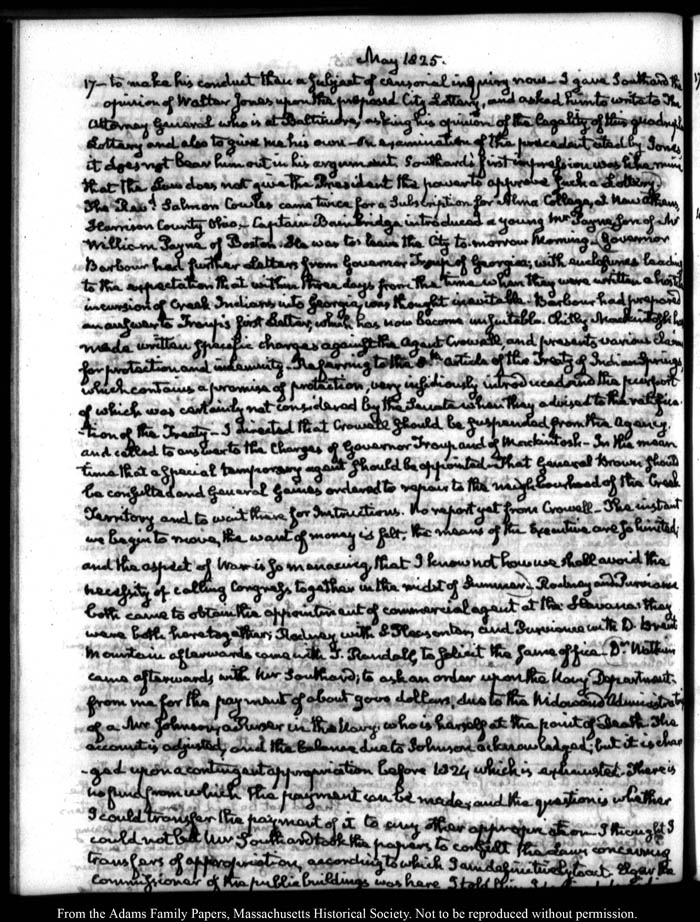 May 1825.
17— to make his conduct then a subject of censorial inquiry now— I gave Southard the
opinion of Walter Jones upon the proposed City Lottery, and asked him to write to the
Attorney General who is at Baltimore, asking his opinion of the legality of this quadruple
Lottery and also to give me his own— On examination of the precedent cited by Jones
it does not bear him out in his argument. Southard's first impression was like mine
that the Law does not give the President the power to approve such a Lottery.
The Revd. Salmon Cowles came twice for a subscription for Alma College, at New Athens,
Harrison County Ohio.— Captain Bainbridge introduced a young Mr Payne, Son of Mr
William Payne of Boston. He was to leave the City to-morrow Morning. Governor
Barbour had further Letters from Governor Troup of Georgia; with enclosures leading
to the expectation that within three days from the time when they were written a hostile
incursion of Creek Indians into Georgia, was thought inevitable. Barbour had prepared
an answer to Troup's first Letter, which has now become unsuitable. Chilly Mackintosh has
made written specific charges against the Agent Crowell and presents various claims
for protection and indemnity— Referring to the 8th. Article of the Treaty of Indian Springs,
which contains a promise of protection, very insidiously introduced and the purport
of which was certainly not considered by the Senate when they advised to the ratifica
-tion of the Treaty— I directed that Crowell should be suspended from the Agency.
and called to answer to the Charges of Governor Troup, and of Mackintosh— In the mean
time that a special temporary agent should be appointed— That General Brown should
be consulted and General Gaines ordered to repair to the neighbourhood of the Creek
Territory and to wait there for Instructions. No report yet from Crowell— The instant
we begin to move, the want of money is felt. the means of the Executive are so limited;
and the aspect of War is so menacing, that I know not how we shall avoid the
necessity of calling Congress together in the midst of Summer. Rodney and Purviance
both came to obtain the appointment of commercial agent at the Havana: they
were both here together; Rodney with S. Pleasonton, and Purviance with D. Brent
Mountain afterwards came with J. Randall, to solicit the same office— Dr. Watkins
came afterwards with Mr Southard; to ask an order upon the Navy Department
from me for the payment of about 9000 dollars, due to the Widow and Administratrix
of a Mr Johnson, a Purser in the Navy; who is herself at the point of Death. The
account is adjusted, and the balance due to Johnson acknowledged; but it is char
-ged upon a contingent appropriation before 1824 which is exhausted. There is
no fund from which the payment can be made; and the question is whether
I could transfer the payment of it to any other appropriation— I thought I
could not but Mr Southard took the papers to consult the Laws concerning
transfers of appropriation, according to which I am definitively to act. Elgar the
Commissioner of the public buildings was here. I told him
From the Adams Family Papers, Massachusetts Historical Society. Not to be reproduced without permission.